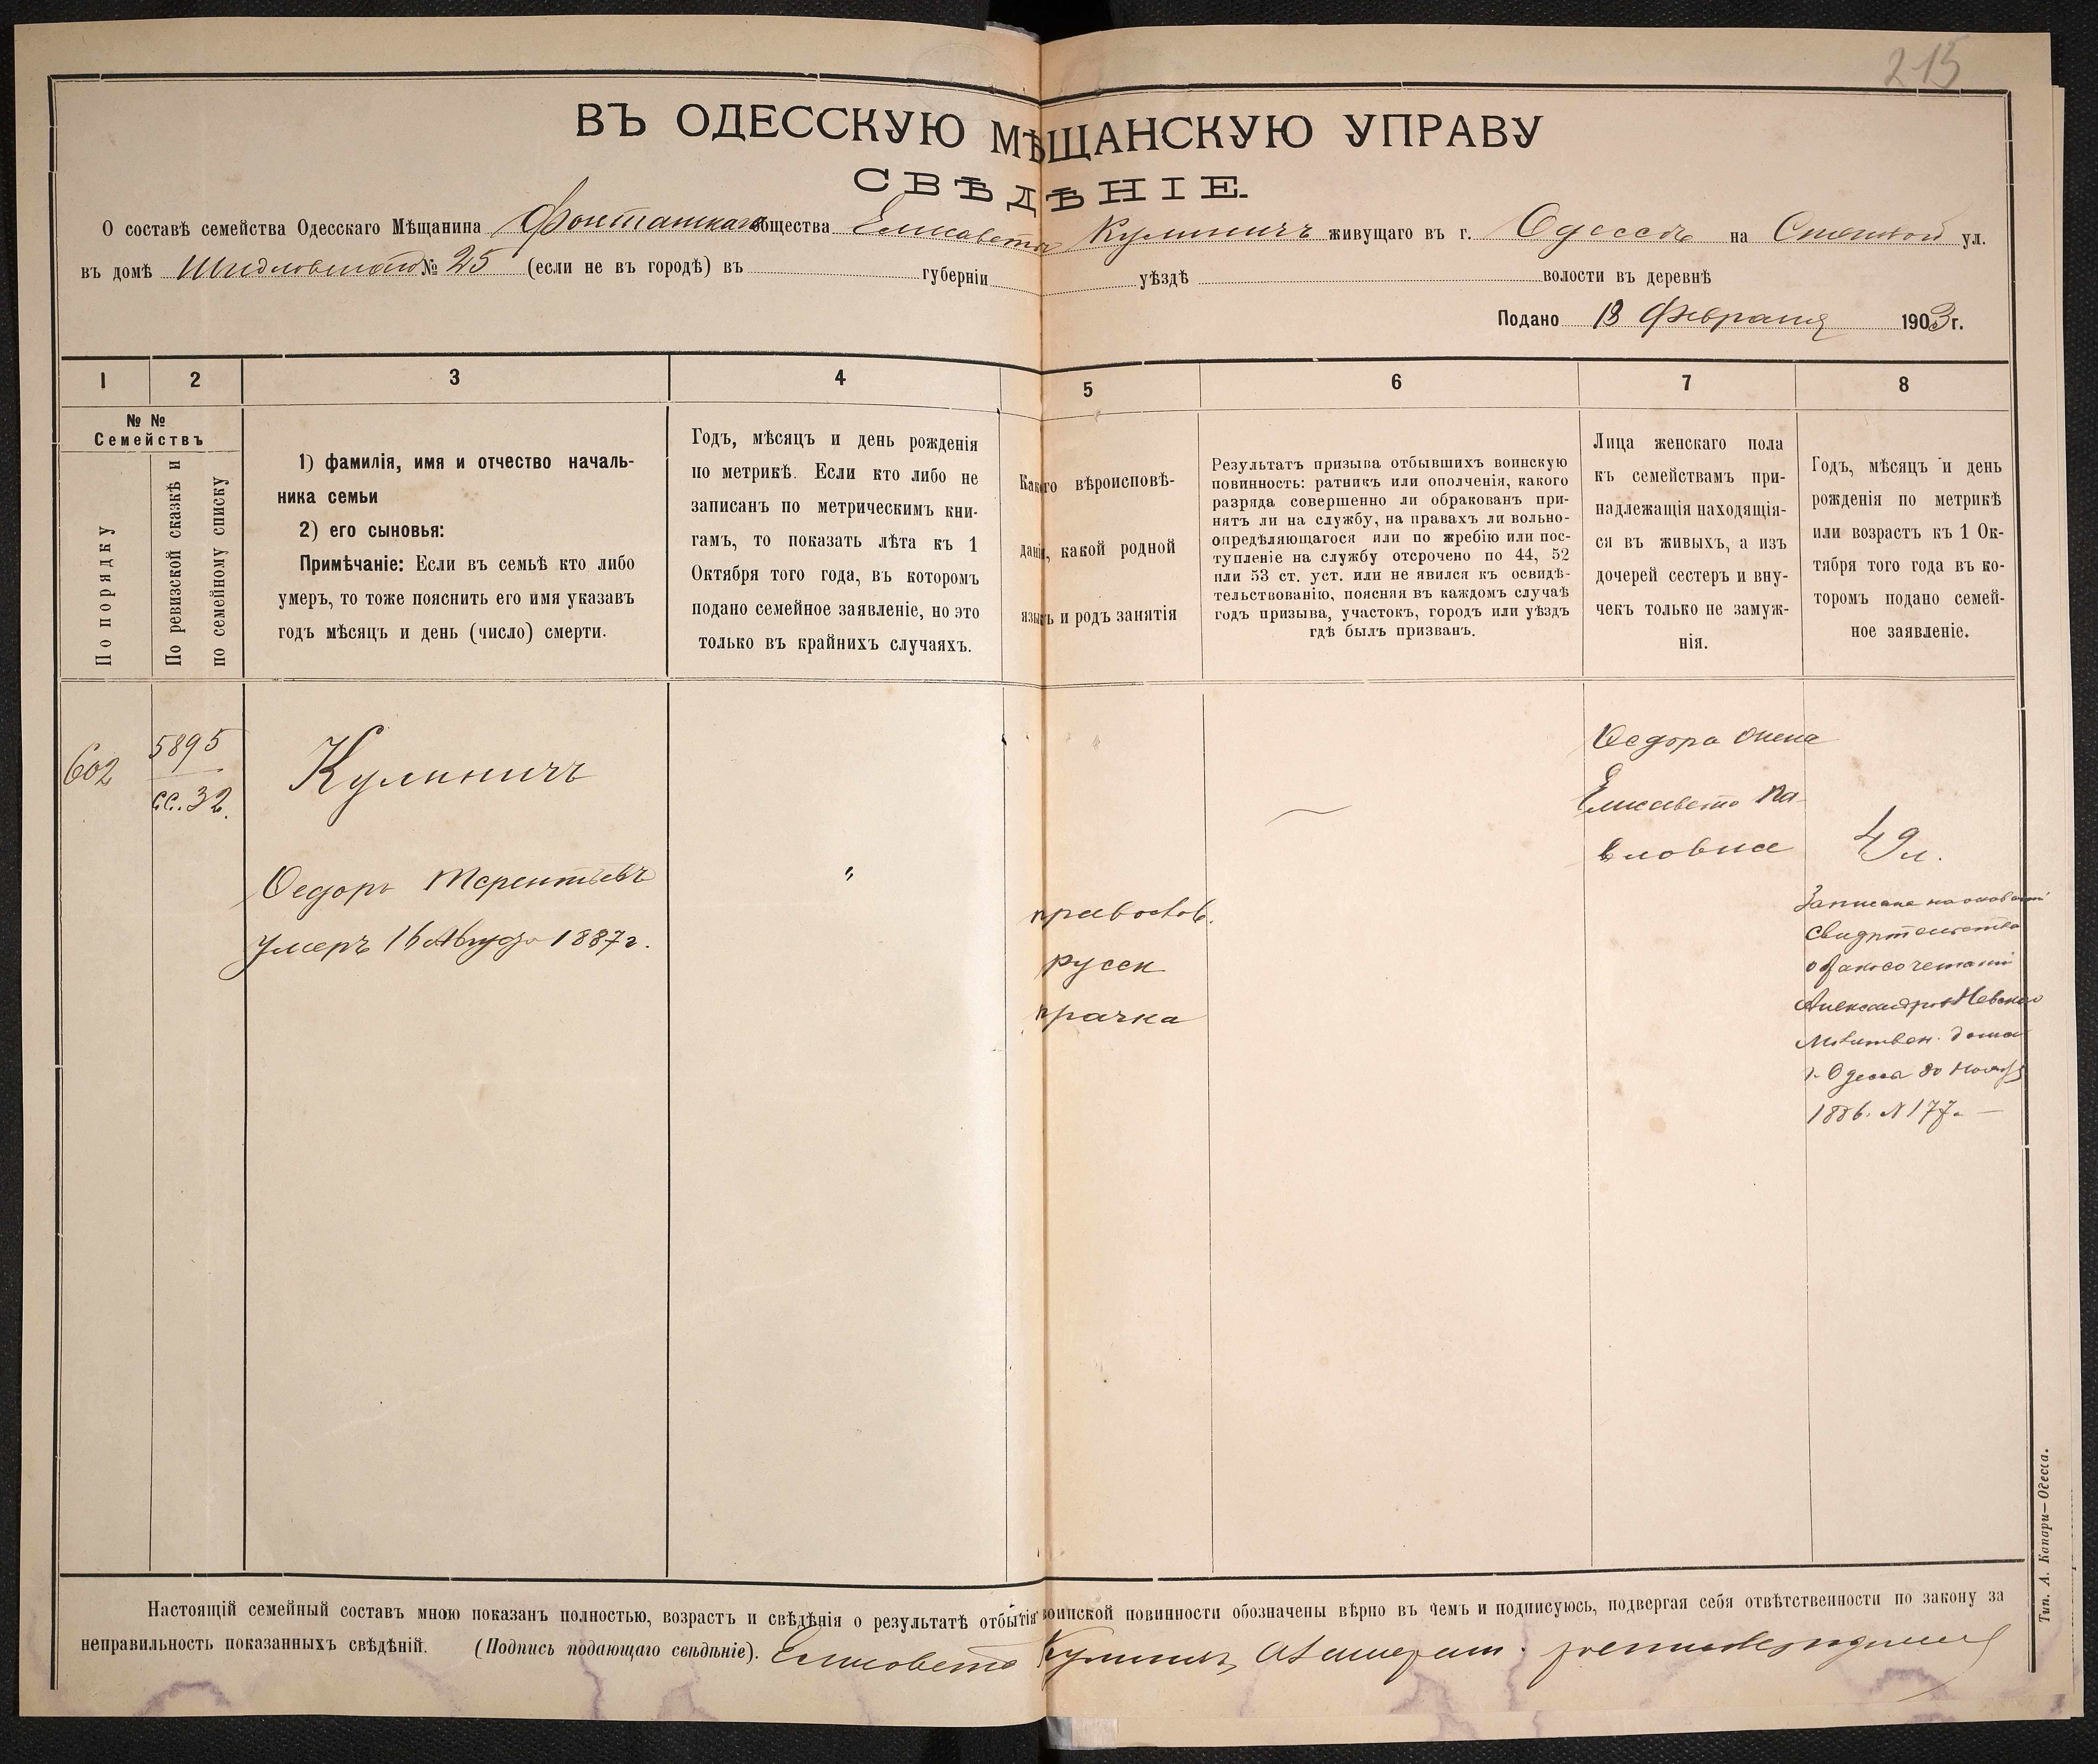 215
ВЪ ОДЕССКУЮ МѢЩАНСКУЮ УПРАВУ
СВѢДѢНІЕ.
О составѣ семейства Одесскаго Мѣщанина Фонтанскаго общества Елисавета Кулиничъ живущаго въ г. Одессѣ на Степной ул.
въ домѣ Шидловскаго № 25 (если не въ городѣ) въ губерніи уѣздѣ волости въ деревнѣ
Подано 13 Февраля 1903 г.
1 2 3 4 5 6 7 8
№ №
Семействъ
По порядку
По ревизской сказкѣ и
по семейному списку
1) фамилія, имя и отчество началь-
ника семьи
2) его сыновья:
Примѣчаніе: Если въ семьѣ кто либо
умеръ, то тоже пояснить его имя указавъ
годъ мѣсяцъ и день (число) смерти.
Годъ, мѣсяцъ и день рожденія
по метрикѣ. Если кто либо не
записанъ по метрическимъ кни-
гамъ, то показать лѣта къ 1
Октября того года, въ которомъ
подано семейное заявленіе, но это
только въ крайнихъ случаяхъ.
Какого вѣроисповѣ-
данія, какой родной
языкъ и родъ занятія
Результатъ призыва отбывшихъ воинскую
повинность: ратникъ или ополченія, какого
разряда совершенно ли обракованъ при-
нятъ ли на службу, на правахъ ли вольно-
опредѣляющагося или по жребію или пос-
тупленіе на службу отсрочено по 44, 52
или 53 ст. уст. или не явился къ освидѣ-
тельствованію, поясняя въ каждомъ случаѣ
годъ призыва, участокъ, городъ или уѣздъ
гдѣ былъ призванъ.
Лица женскаго пола
къ семействамъ при-
надлежащія находящія-
ся въ живыхъ, а изъ
дочерей сестеръ и вну-
чекъ только не замуж-
нія.
Годъ, мѣсяцъ и день
рожденія по метрикѣ
или возрастъ къ 1 Ок-
тября того года въ ко-
торомъ подано семей-
ное заявленіе.
602
5895
СС. 32.
Кулиничъ
Ѳедоръ Терентьевъ
умеръ 16 Августа 1887 г.
"
православ.
русск
прачка
Ѳедора жена
Елисавета Па-
вловна
49 л.
Записана на основаніи
Свидѣтельства
о бракосочетаніи
Александро Невскаго
Молитвен. дома
г. Одесса 30 Ноября
1886. № 177. —
Настоящій семейный составъ мною показанъ полностью, возрастъ и свѣдѣнія о результатѣ отбытія воинской повинности обозначены вѣрно въ чемъ и подписуюсь, подвергая себя отвѣтственности по закону за
неправильность показанныхъ свѣдѣній. (Подпись подающаго свѣдѣніе). Елисавета Кулиничъ
Тип. А. Капари—Одесса.